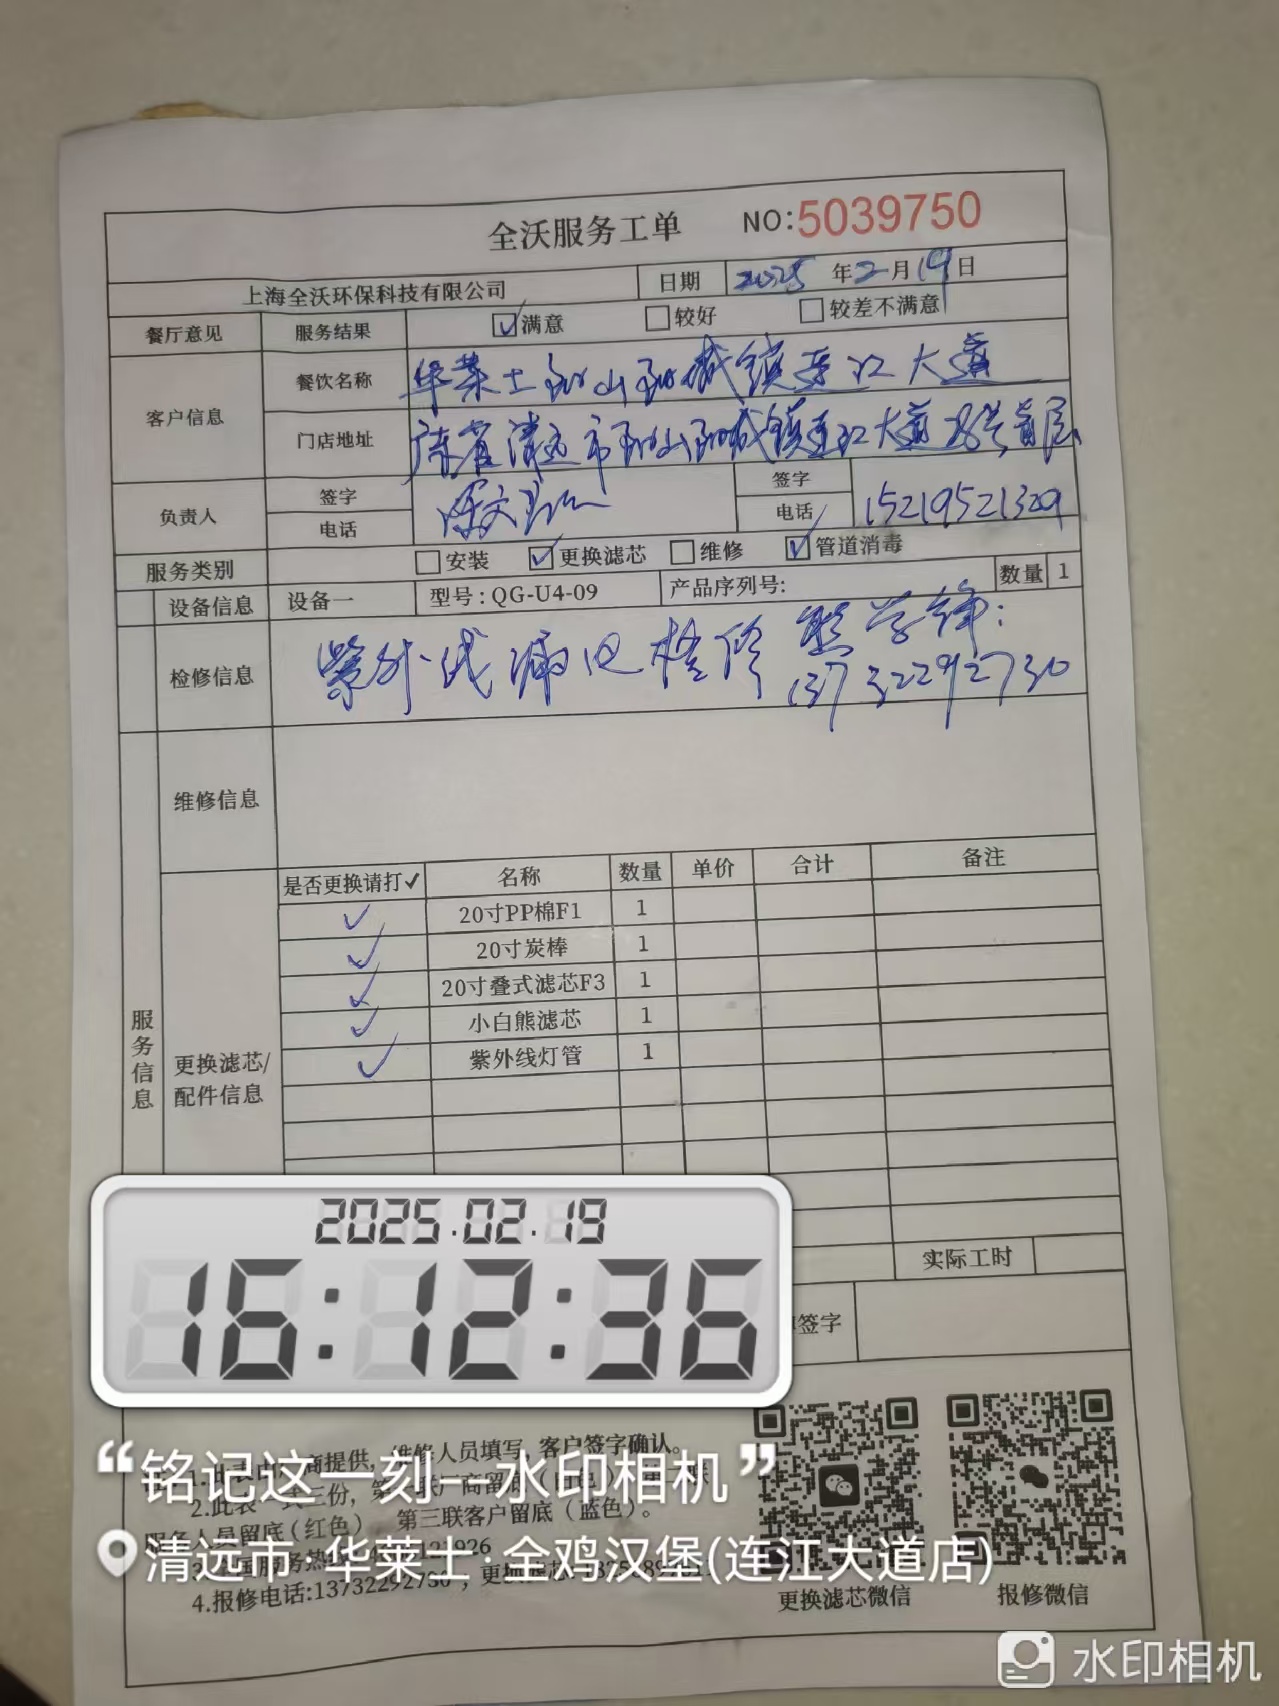 全沃服务工单 NO:5039750
上海全沃环保科技有限公司 日期 2025 年 2 月 19 日
餐厅意见 服务结果 ☑满意 □较好 □较差不满意
客户信息 餐饮名称 华莱士阳山阳城镇连江大道
门店地址 广东省清远市阳山阳城镇连江大道 号首层
负责人 签字 签字
电话 电话 15219521329
服务类别 □安装 ☑更换滤芯 □维修 ☑管道消毒
设备信息 设备一 型号:QG-U4-09 产品序列号: 数量 1
检修信息 紫外线漏电检修 熊学锋:
13732292730
维修信息
服务信息
更换滤芯/
配件信息
是否更换请打✓ 名称 数量 单价 合计 备注
✓ 20寸PP棉F1 1
✓ 20寸炭棒 1
✓ 20寸叠式滤芯F3 1
✓ 小白熊滤芯 1
✓ 紫外线灯管 1
实际工时
签字
2025.02.19
16:12:36
维修人员填写,客户签字确认。
第三联客户留底(蓝色)。
4.报修电话:13732292730
更换滤芯微信 报修微信
“铭记这一刻—水印相机”
清远市·华莱士·全鸡汉堡(连江大道店)
水印相机